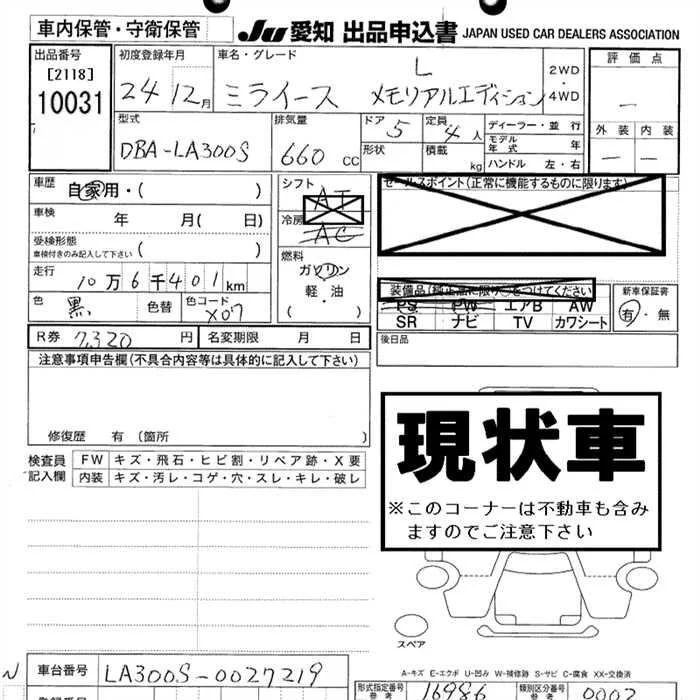 車内保管・守衛保管
Ju 愛知 出品申込書 JAPAN USED CAR DEALERS ASSOCIATION
出品番号
[2118]
10031
初度登録年月
24 12月
車名・グレード
L
ミライース メモリアルエディション
2WD
・
4WD
評価点
―
外装 内装
― ―
型式
DBA-LA300S
排気量
660 cc
ドア
5
定員
4人
形状
積載
kg
ディーラー・並行
モデル年式 年
ハンドル 左・右
車歴 自家用・( )
車検 年 月( 日)
受検形態
車検付きのみ記入して下さい ( )
走行 10万6千401km
色 黒 色替 色コード X07
シフト
AT
冷房
AC
燃料
ガソリン
軽・油
( )
セールスポイント(正常に機能するものに限ります)
装備品(純正品に限り○をつけてください)
PS PW エアB AW
SR ナビ TV カワシート
新車保証書
有・無
R券 7,320 円 名変期限 月 日
後日品
注意事項申告欄(不具合内容等は具体的に記入して下さい)
修復歴 有 (箇所 )
検査員記入欄
FW キズ・飛石・ヒビ割・リペア跡・X要
内装 キズ・汚レ・コゲ・穴・スレ・キレ・破レ
現状車
※このコーナーは不動車も含み
ますのでご注意下さい
スペア
A-キズ E-エクボ U-凹み W-補修跡 S-サビ C-腐食 XX-交換済
N
車台番号 LA300S-0027219
型式指定番号
参考
16986
類別区分番号
参考
0002